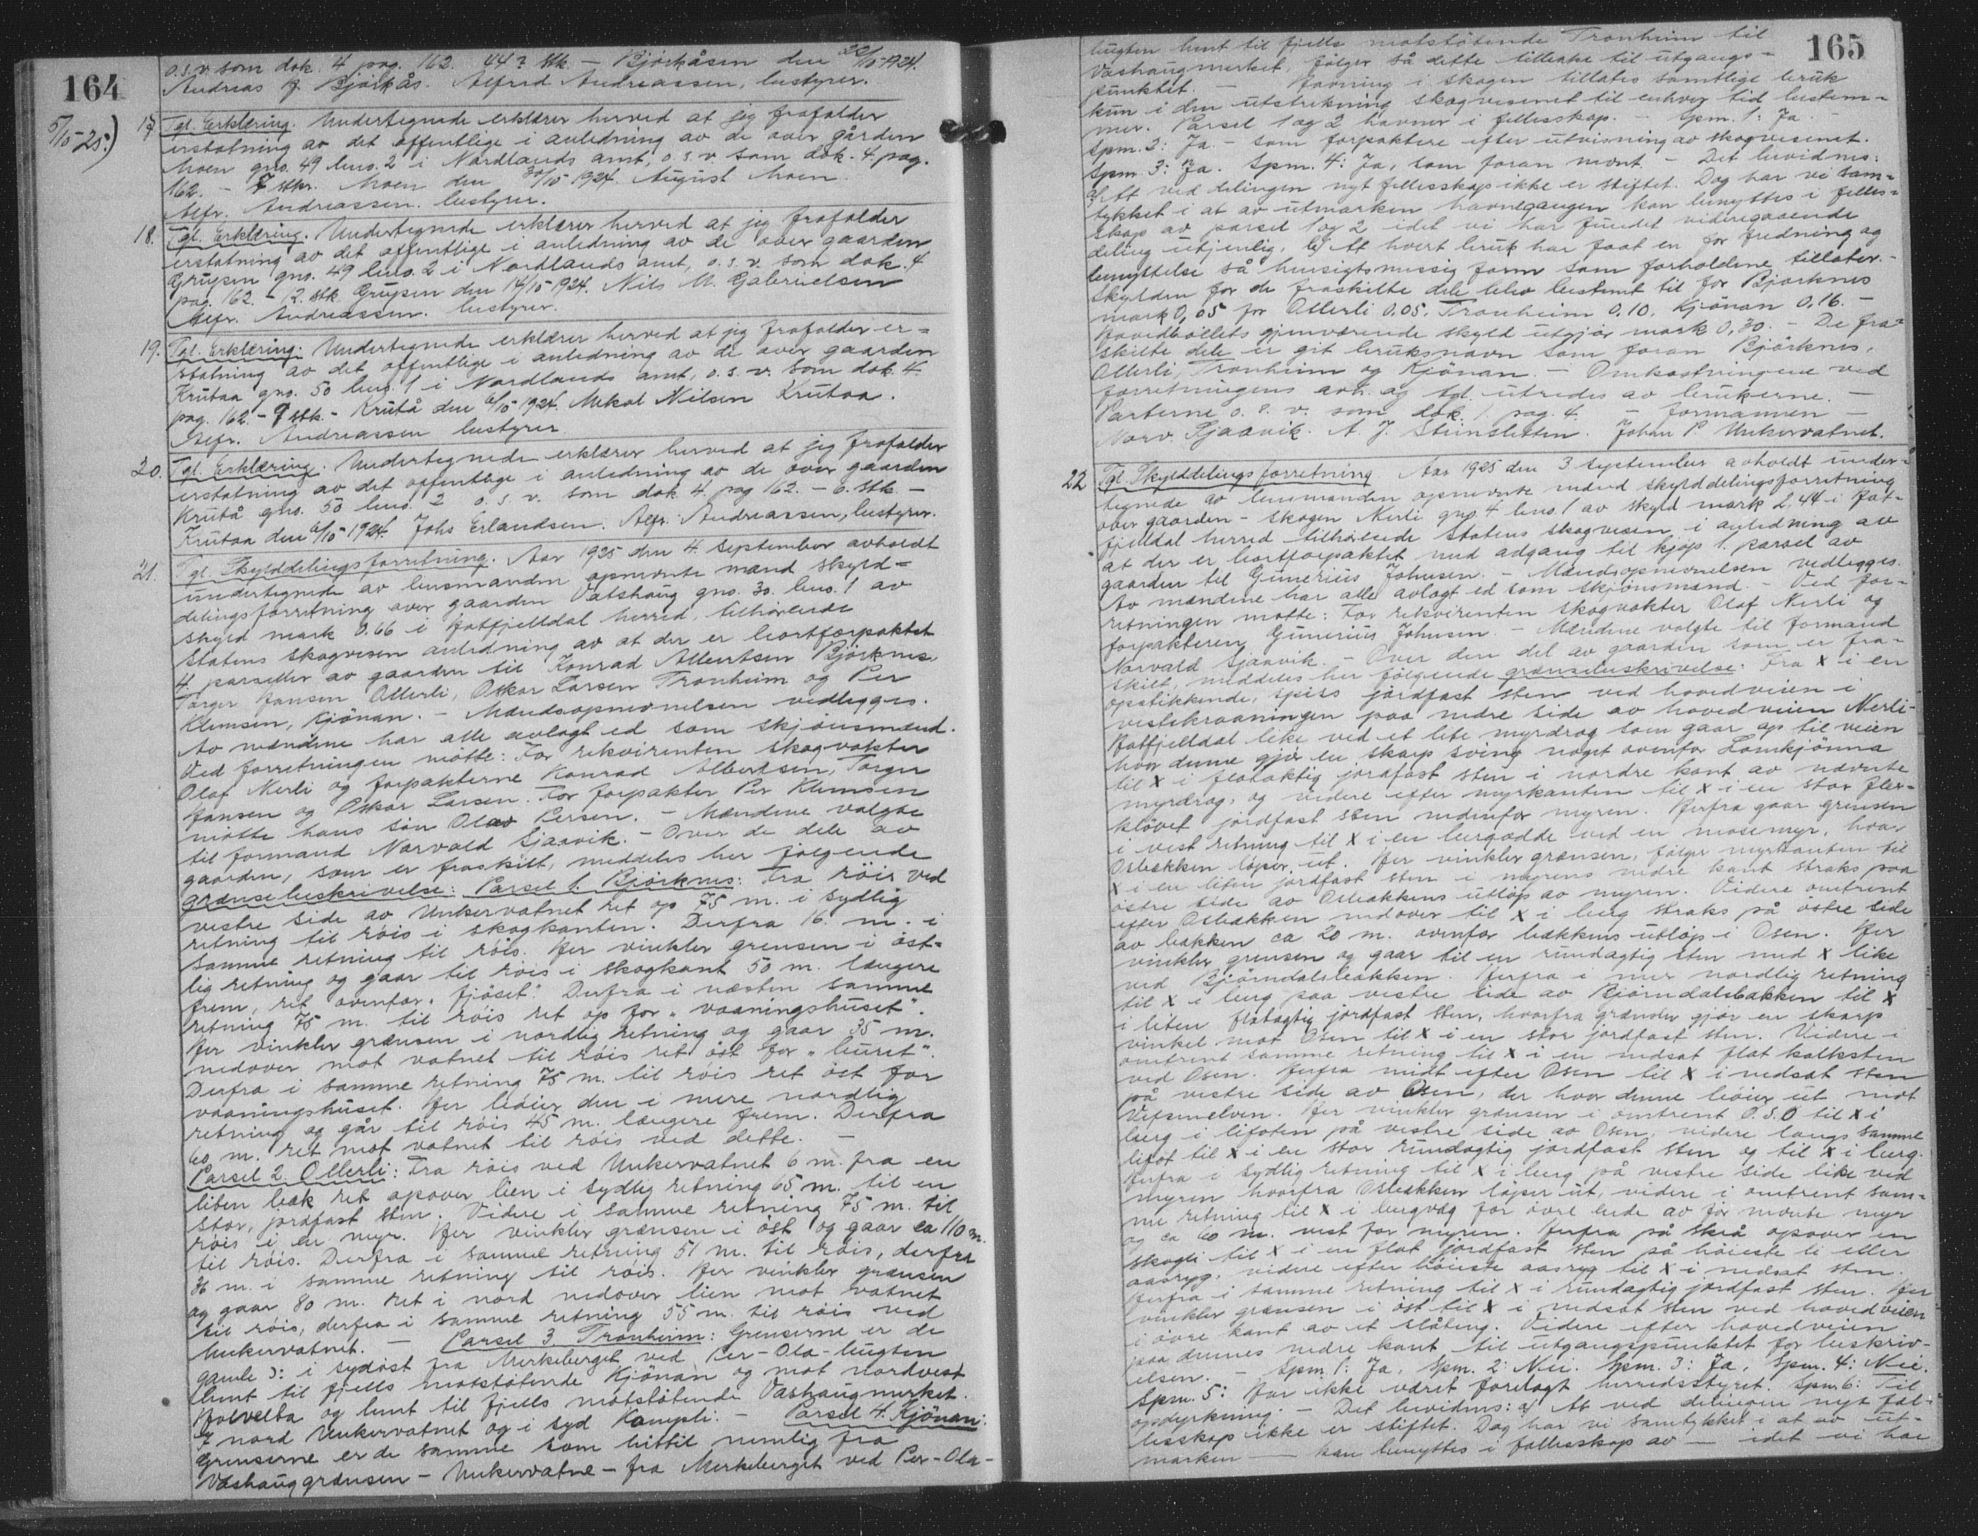 164
5/10 25.)
o.s.v. som dok. 4 pag. 162. 44 stk - Bjørkåsen den 22/10 1924.
Andreas J. Bjørkås. Alfred Andreassen, bestyrer.
17. Tgl. Erklæring. Undertegnede erklærer herved at jeg frafalder
erstatning av det offentlige i anledning av de over gården
Moen gno. 49 bno. 2 i Nordlands amt, o.s.v. som dok. 4. pag.
162. - 7 stkr. Moen den 30/10 1924. August Moen.
Alfr. Andreassen. bestyrer.
18. Tgl. Erklæring. Undertegnede erklærer herved at jeg frafalder
erstatning av det offentlige i anledning av de over gaarden
Grupen gno. 49 bno. 2 i Nordlands amt, o.s.v. som dok. 4
pag. 162. - 12. stk Grupen den 14/10 1924. Nils M. Gabrielsen
Alfr. Andreassen. bestyrer.
19. Tgl. Erklæring. Undertegnede erklærer herved at jeg frafalder er-
statning av det offentlige i anledning av de over gaarden
Krutaa gno. 50 bno. 1 i Nordlands amt, o.s.v. som dok. 4
pag. 162 - 9 stk. - Krutå den 6/10 1924. Mikal Nilsen Krutaa.
Alfr. Andreassen bestyrer
20. Tgl. Erklæring. Undertegnede erklærer herved at jeg frafalder
erstatning av det offentlige i anledning av de over gaarden
Krutå gno. 50 bno. 2 o.s.v. som dok 4. pag 162. - 6. stk. -
Krutaa den 6/10 1924. Johs Erlandsen. Alfr. Andreassen, bestyrer.
21. Tgl. Skylddelingsforretning. Aar 1925 den 4. september avholdt
undertegnede av lensmanden opnævnte mænd skyld-
delingsforretning over gaarden Vatshaug gno. 30. bno. 1 av
skyld mark 0.66 i Hatfjelldal herred, tilhørende
Statens skogvesen anledning av at der er bortforpaktet
4 parseller av gaarden til Konrad Albertsen Bjørknes
Torger Jansen Otterli, Oskar Larsen Tronheim og Per
Klemsen, Kjönan. - Mændsopnevnelsen vedlegges.
Av mændene har alle avlagt ed som skjønsmænd.
Ved forretningen møtte: For rekvirenten skogvokter
Olaf Nerli og forpakterne Konrad Albertsen, Torger
Jansen og Oskar Larsen. For forpakter Per Klemsen
møtte hans søn Olav Persen. - Mændene valgte
til formand Norvald Sjaavik. - Over de dele av
gaarden, som er fraskilt, meddeles her følgende
grænsebeskrivelse: Parsel 1. Bjørknes: Fra röis ved
vestre side av Unkervatnet ret op 75 m. i sydlig
retning til röis i skogkanten. Derfra 16 m. i
samme retning til röis. Her vinkler grensen i öst-
lig retning og gaar til röis i skogkant 50 m. længere
frem, ret ovenfor "fjöset". Derfra i næsten samme
retning 75 m. til röis ret op for "vaaningshuset".
Her vinkler grænsen i nordlig retning og gaar 35 m.
nedover mot vatnet til röis ret öst for "buret".
Derfra i samme retning 75 m. til röis ret öst for
vaaningshuset. Her böier den i mere nordlig
retning og går til röis 45 m. længere frem. Derfra
60 m. ret mot vatnet til röis ved dette. -
Parsel 2. Otterli: Fra röis ved Unkervatnet 6 m. fra en
liten bæk ret opover lien i sydlig retning 65 m. til en
stor, jordfast sten. Videre i samme retning 75 m. til
röis i en myr. Her vinkler grænsen i öst og gaar ca 110 m.
til röis. Derfra i samme retning 51 m. til röis, derfra
36 m. i samme retning til röis. Her vinkler grænsen
og gaar 80 m. ret i nord nedover lien mot vatnet
til röis, derfra i samme retning 55 m. til röis ved
Unkervatnet. - Parsel 3. Tronheim: Grenserne er de
gamle ɔ: i sydöst fra Merkeberget ved Per-Ola-bugten
bent til fjells motstötende Kjönan og mot nordvest
Holvelta og bent til fjells motstötende Vashaugmerket.
I nord Unkervatnet og i syd Kampli. - Parsel 4. Kjönan:
Grenserne er de samme som hittil nemlig fra
Vashauggrænsen - Unkervatne - fra Merkeberget ved Per-Ola-
165
bugten bent til fjells motstötende Tronheim til
Vashaugmerket, følger så dette tilbake til utgangs-
punktet. - Havning i skogen tillates samtlige bruk
kun i den utstrekning skogvesenet til enhver tid bestem-
mer. Parsel 1 og 2 havner i fellesskap. - Spm. 1: Ja -
Spm. 2: Ja - som forpaktere efter utvisning av skogvesenet.
Spm. 3: Ja. Spm. 4: Ja, som foran nævnt - Det bevidnes:
a) At ved delingen nyt fellesskap ikke er stiftet. Dog har vi sam-
tykket i at av utmarken havnegangen kan benyttes i felles-
skap av parsel 1 og 2 idet vi har fundet videregaaende
deling utjenlig. b) At hvert bruk har faat en for fredning og
benyttelse så hensigtsmessig form som forholdene tillater. -
Skylden for de fraskilte dele blev bestemt til for Bjørknes
mark 0,05 for Otterli 0.05. Tronheim 0,10. Kjönan 0,16. -
Hovedbøllets gjenværende skyld utgjør mark 0,30. - De fra-
skilte dele er git bruksnavn som foran Björknes,
Otterli, Tronheim og Kjönan. - Omkostningene ved
forretningens avh. og tgl. utredes av brukerne. -
Parterne o.s.v. som dok. 1. pag. 4. - Formannen -
Norv. Sjaavik. A. J. Steinsletten. Johan P. Unkervatnet.
22 Tgl. Skylddelingsforretning Aar 1925 den 3 september avholdt under-
tegnede av lensmanden opnævnte mænd skylddelingsforretning
over gaarden - skogen Nerli gno. 4 bno. 1 av skyld mark 2,44 i Hat-
fjelldal herred tilhørende Statens skogvesen i anledning av
at der er bortforpaktet med adgang til kjøp 1. parsel av
gaarden til Gunerius Johnsen. - Mændsopnevnelsen vedlegges.
Av mændene har alle avlagt ed som skjønsmænd. - Ved for-
retningen møtte: For rekvirenten skogvokter Olaf Nerli og
forpakteren Gunerius Johnsen. - Mændene valgte til formand
Norvald Sjaavik. - Over den del av gaarden som er fra-
skilt, meddeles her følgende grænsebeskrivelse: Fra X i en
opstikkende, spids jordfast sten ved hovedveien i
vestskraaningen paa nedre side av hovedveien Nerli-
Hatfjelldal like ved et lite myrdrag som gaar op til veien
hvor denne gjør en skarp sving noget ovenfor Lomkjönna
til X i flataktig jordfast sten i nordre kant av nævnte
myrdrag, og videre efter myrkanten til X i en stor fler-
kløvet jordfast sten nedenfor myren. Herfra gaar grensen
i vest retning til X i en bergnedde ved en mosemyr, hvor
Osbækken løper ut. Her vinkler grænsen, følger myrkanten til
X i en liten jordfast sten i myrens nedre kant straks paa
östre side av Osbækkens utløp av myren. Videre omtrent
efter Osbækken nedover til X i berg straks på östre side
av bækken ca 20 m. ovenfor bækkens utløp i Osen. Her
vinkler grensen og gaar til en rundagtig sten med X like
ved Bjørndalsbækken. Herfra i mer nordlig retning
til X i berg paa vestre side av Bjørndalsbækken til X
i liten flatagtig jordfast sten, hvorfra grænsen gjør en skarp
vinkel mot Osen til X i en stor jordfast sten. Videre i
omtrent samme retning til X i en nedsat flat kalksten
ved Osen. Herfra midt efter Osen til X i nedsat sten
på vestre side av Osen, der hvor denne böier ut mot
Vefsnelven. Her vinkler grænsen i omtrent O.S.O til X i
berg i lifoten på vestre side av Osen, videre langs samme
lifot til X i en stor rundagtig jordfast sten og til X i berg.
Herfra i sydlig retning til X i berg på vestre side like ved
myren hvorfra Osbækken løper ut, videre i omtrent sam-
me retning til X i bergvæg for övre ende av før nævnte myr
og ca 60 m. vest for myren. Herfra på skrå opover en
skogli til X i en flat jordfast sten på høieste li eller
aasryg. Videre efter høieste aasryg til X i nedsat sten.
Herfra i samme retning til X i rundagtig jordfast sten. Her
vinkler grænsen i öst til X i nedsat sten ved hovedveien
i övre kant av et slåteng. Videre efter hovedveien
paa dennes nedre kant til utgangspunktet for beskriv-
elsen. - Spm. 1: Ja, Spm. 2: Nei. Spm. 3: Ja, Spm. 4: Nei.
Spm. 5: Har ikke været forelagt herredsstyret. Spm 6: Til
opdyrkning. - Det bevidnes: a) At ved delingen nyt fæl-
lesskap ikke er stiftet. Dog har vi samtykket i at av ut-
marken — kan benyttes i fællesskap av — idet vi har